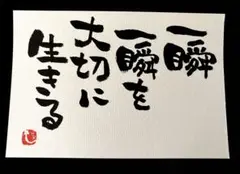 一瞬
一瞬を
大切に
生きる